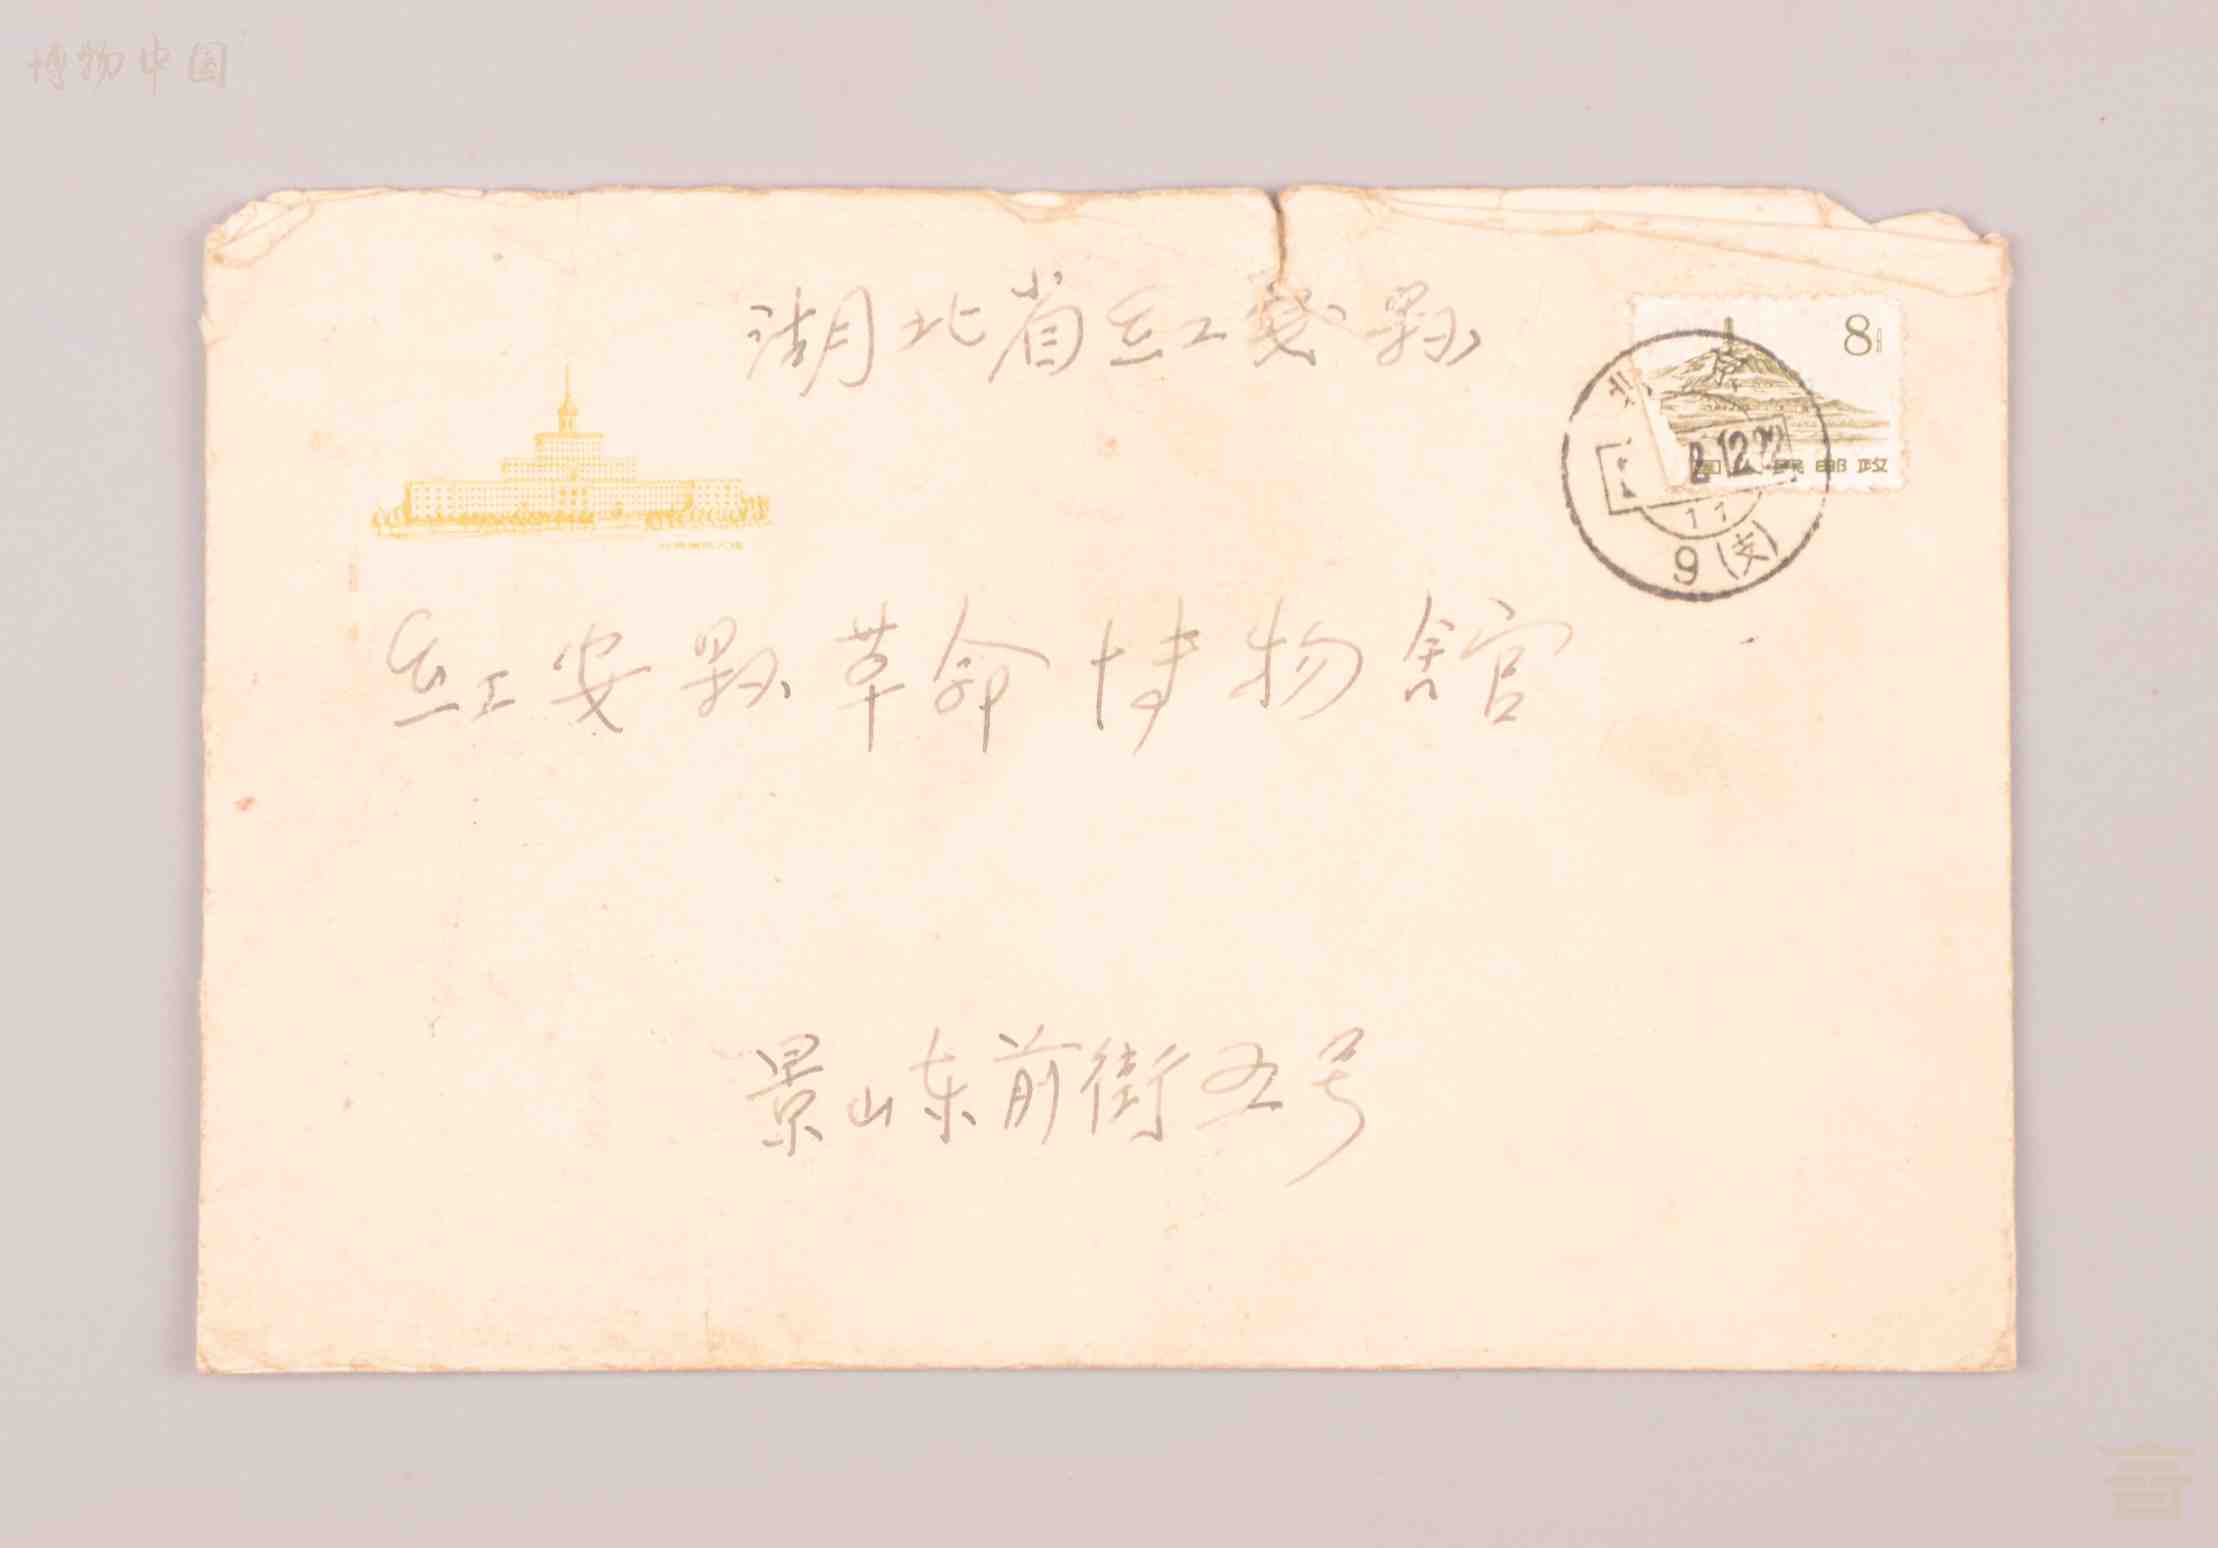 博物中国
湖北省红安縣
8
北京
2.12.22
11
9(支)
民邮政
红安縣革命博物舘
景山东前街五号